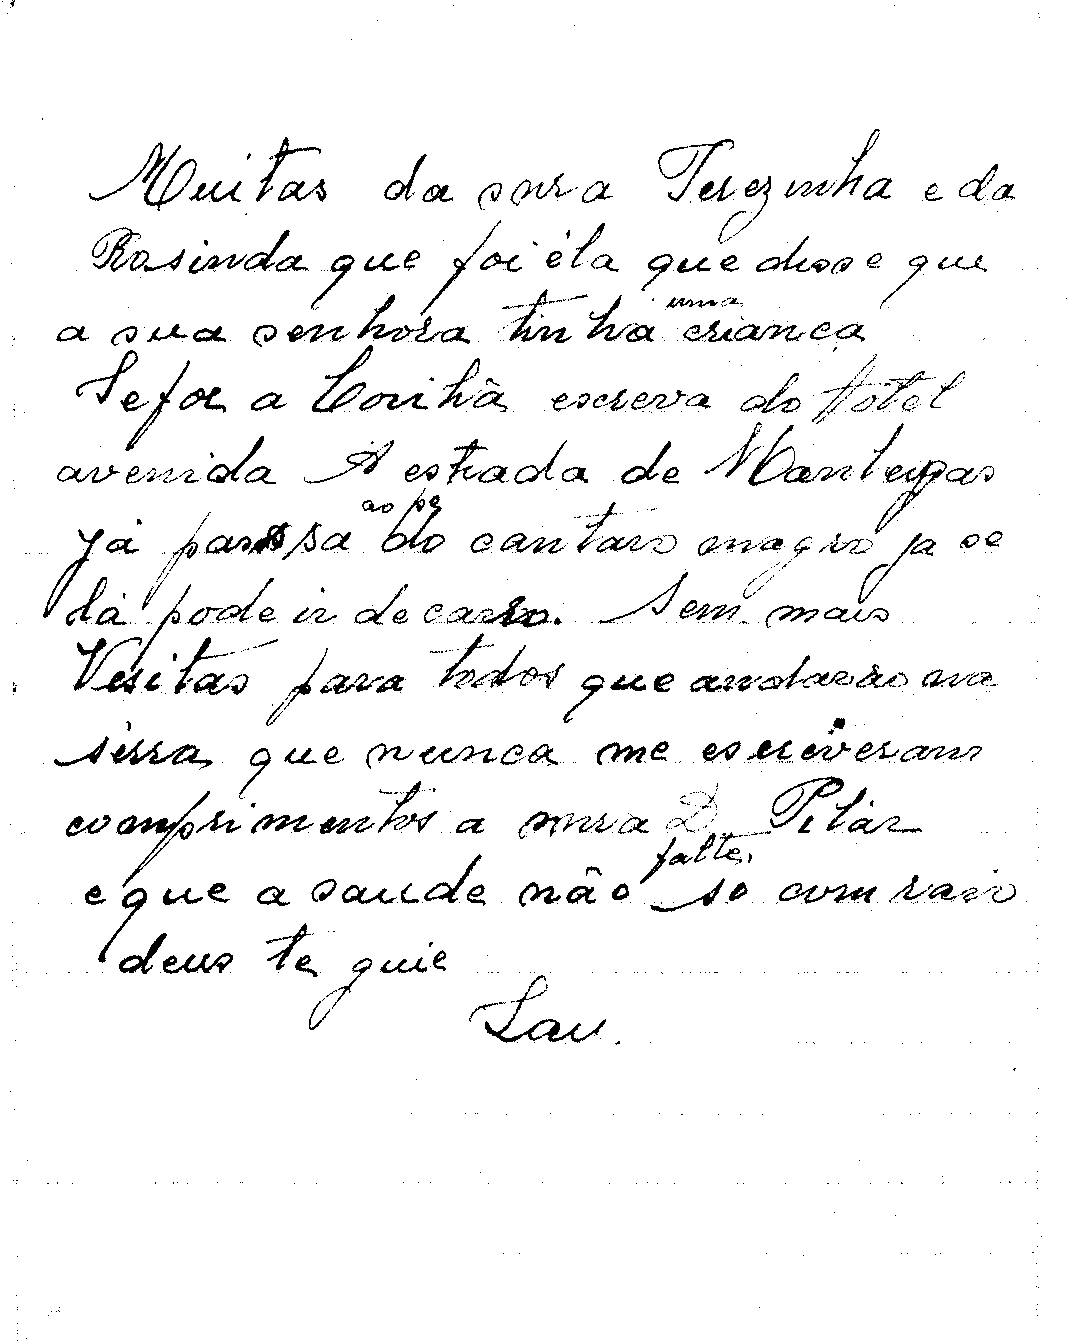 Muitas da snra Terezinha e da
Rosinda que foi éla que disse que
a sua senhora tinha uma crianca
Se for a Covihã escreva do hotel
avenida A estrada de Manteigas
já passa ao pe do cantaro magro ja se
lá pode ir de carro. Sem mais
Vesitas para todos que andarão na
sérra que nunca me escreveram
comprimentos a snra D. Pilár
e que a saude não falte.
deus te guie
Lau.